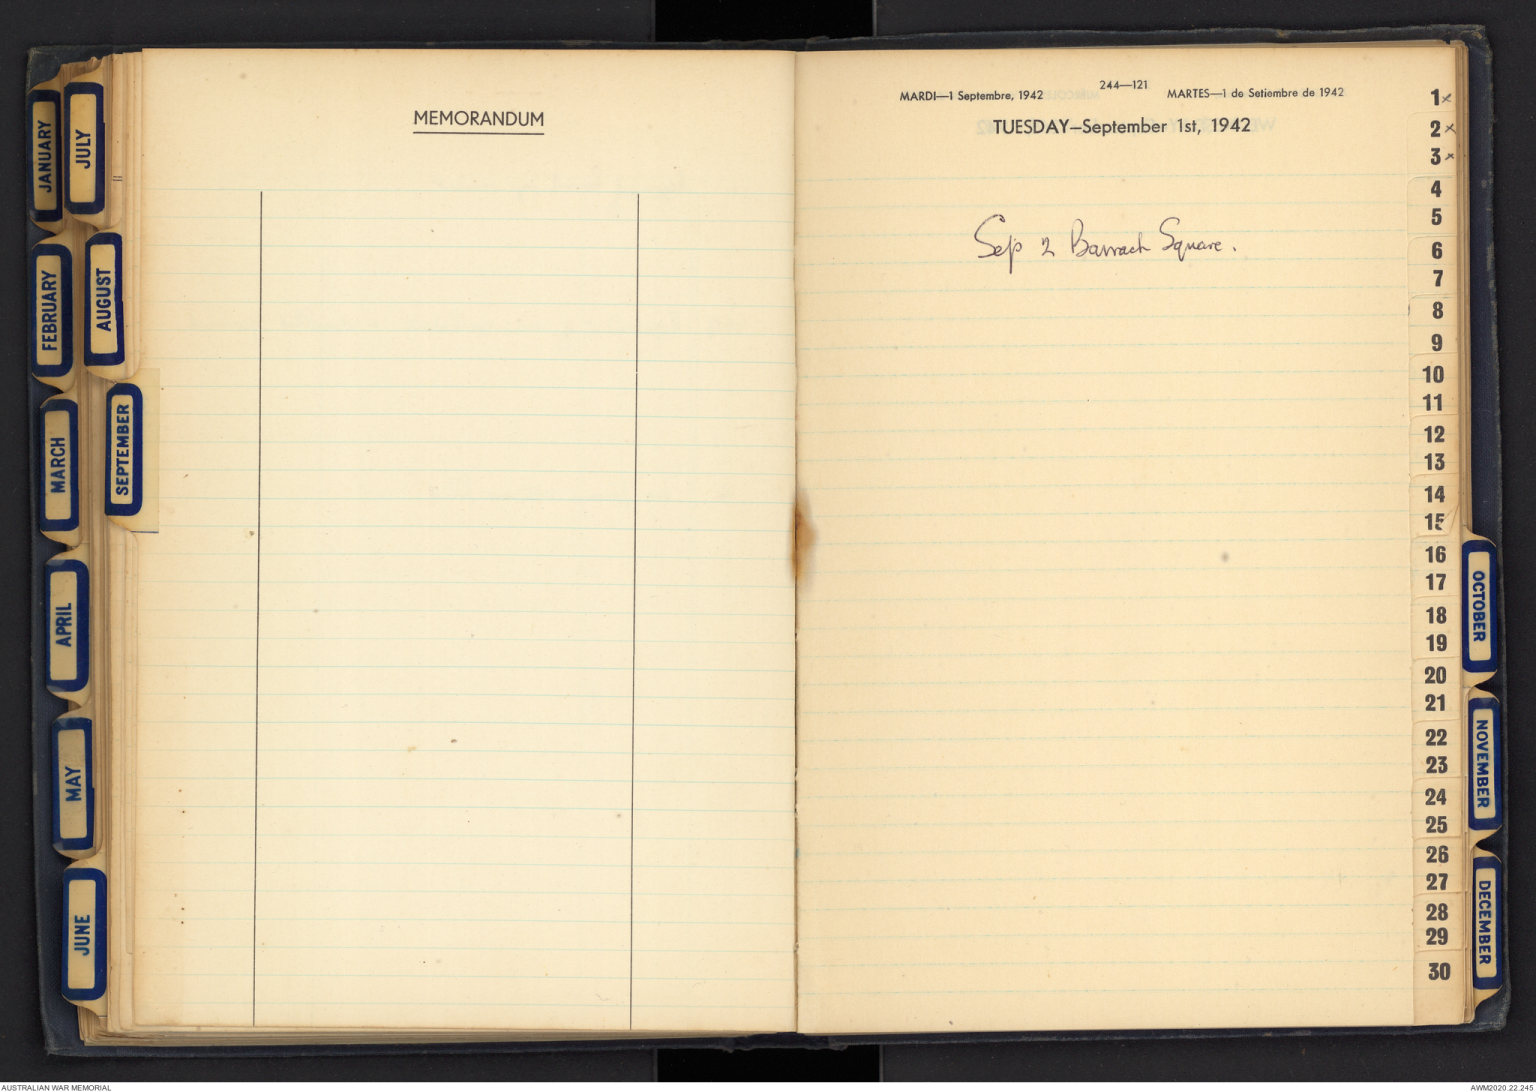 JANUARY
JULY
FEBRUARY
AUGUST
MARCH
SEPTEMBER
APRIL
MAY
JUNE
MEMORANDUM
244—121
MARDI—1 Septembre, 1942 MARTES—1 de Setiembre de 1942
TUESDAY—September 1st, 1942
Sep 2 Barrack Square.
1x
2x
3x
4
5
6
7
8
9
10
11
12
13
14
15
16
17
18
19
20
21
22
23
24
25
26
27
28
29
30
OCTOBER
NOVEMBER
DECEMBER
AUSTRALIAN WAR MEMORIAL
AWM2020.22.245